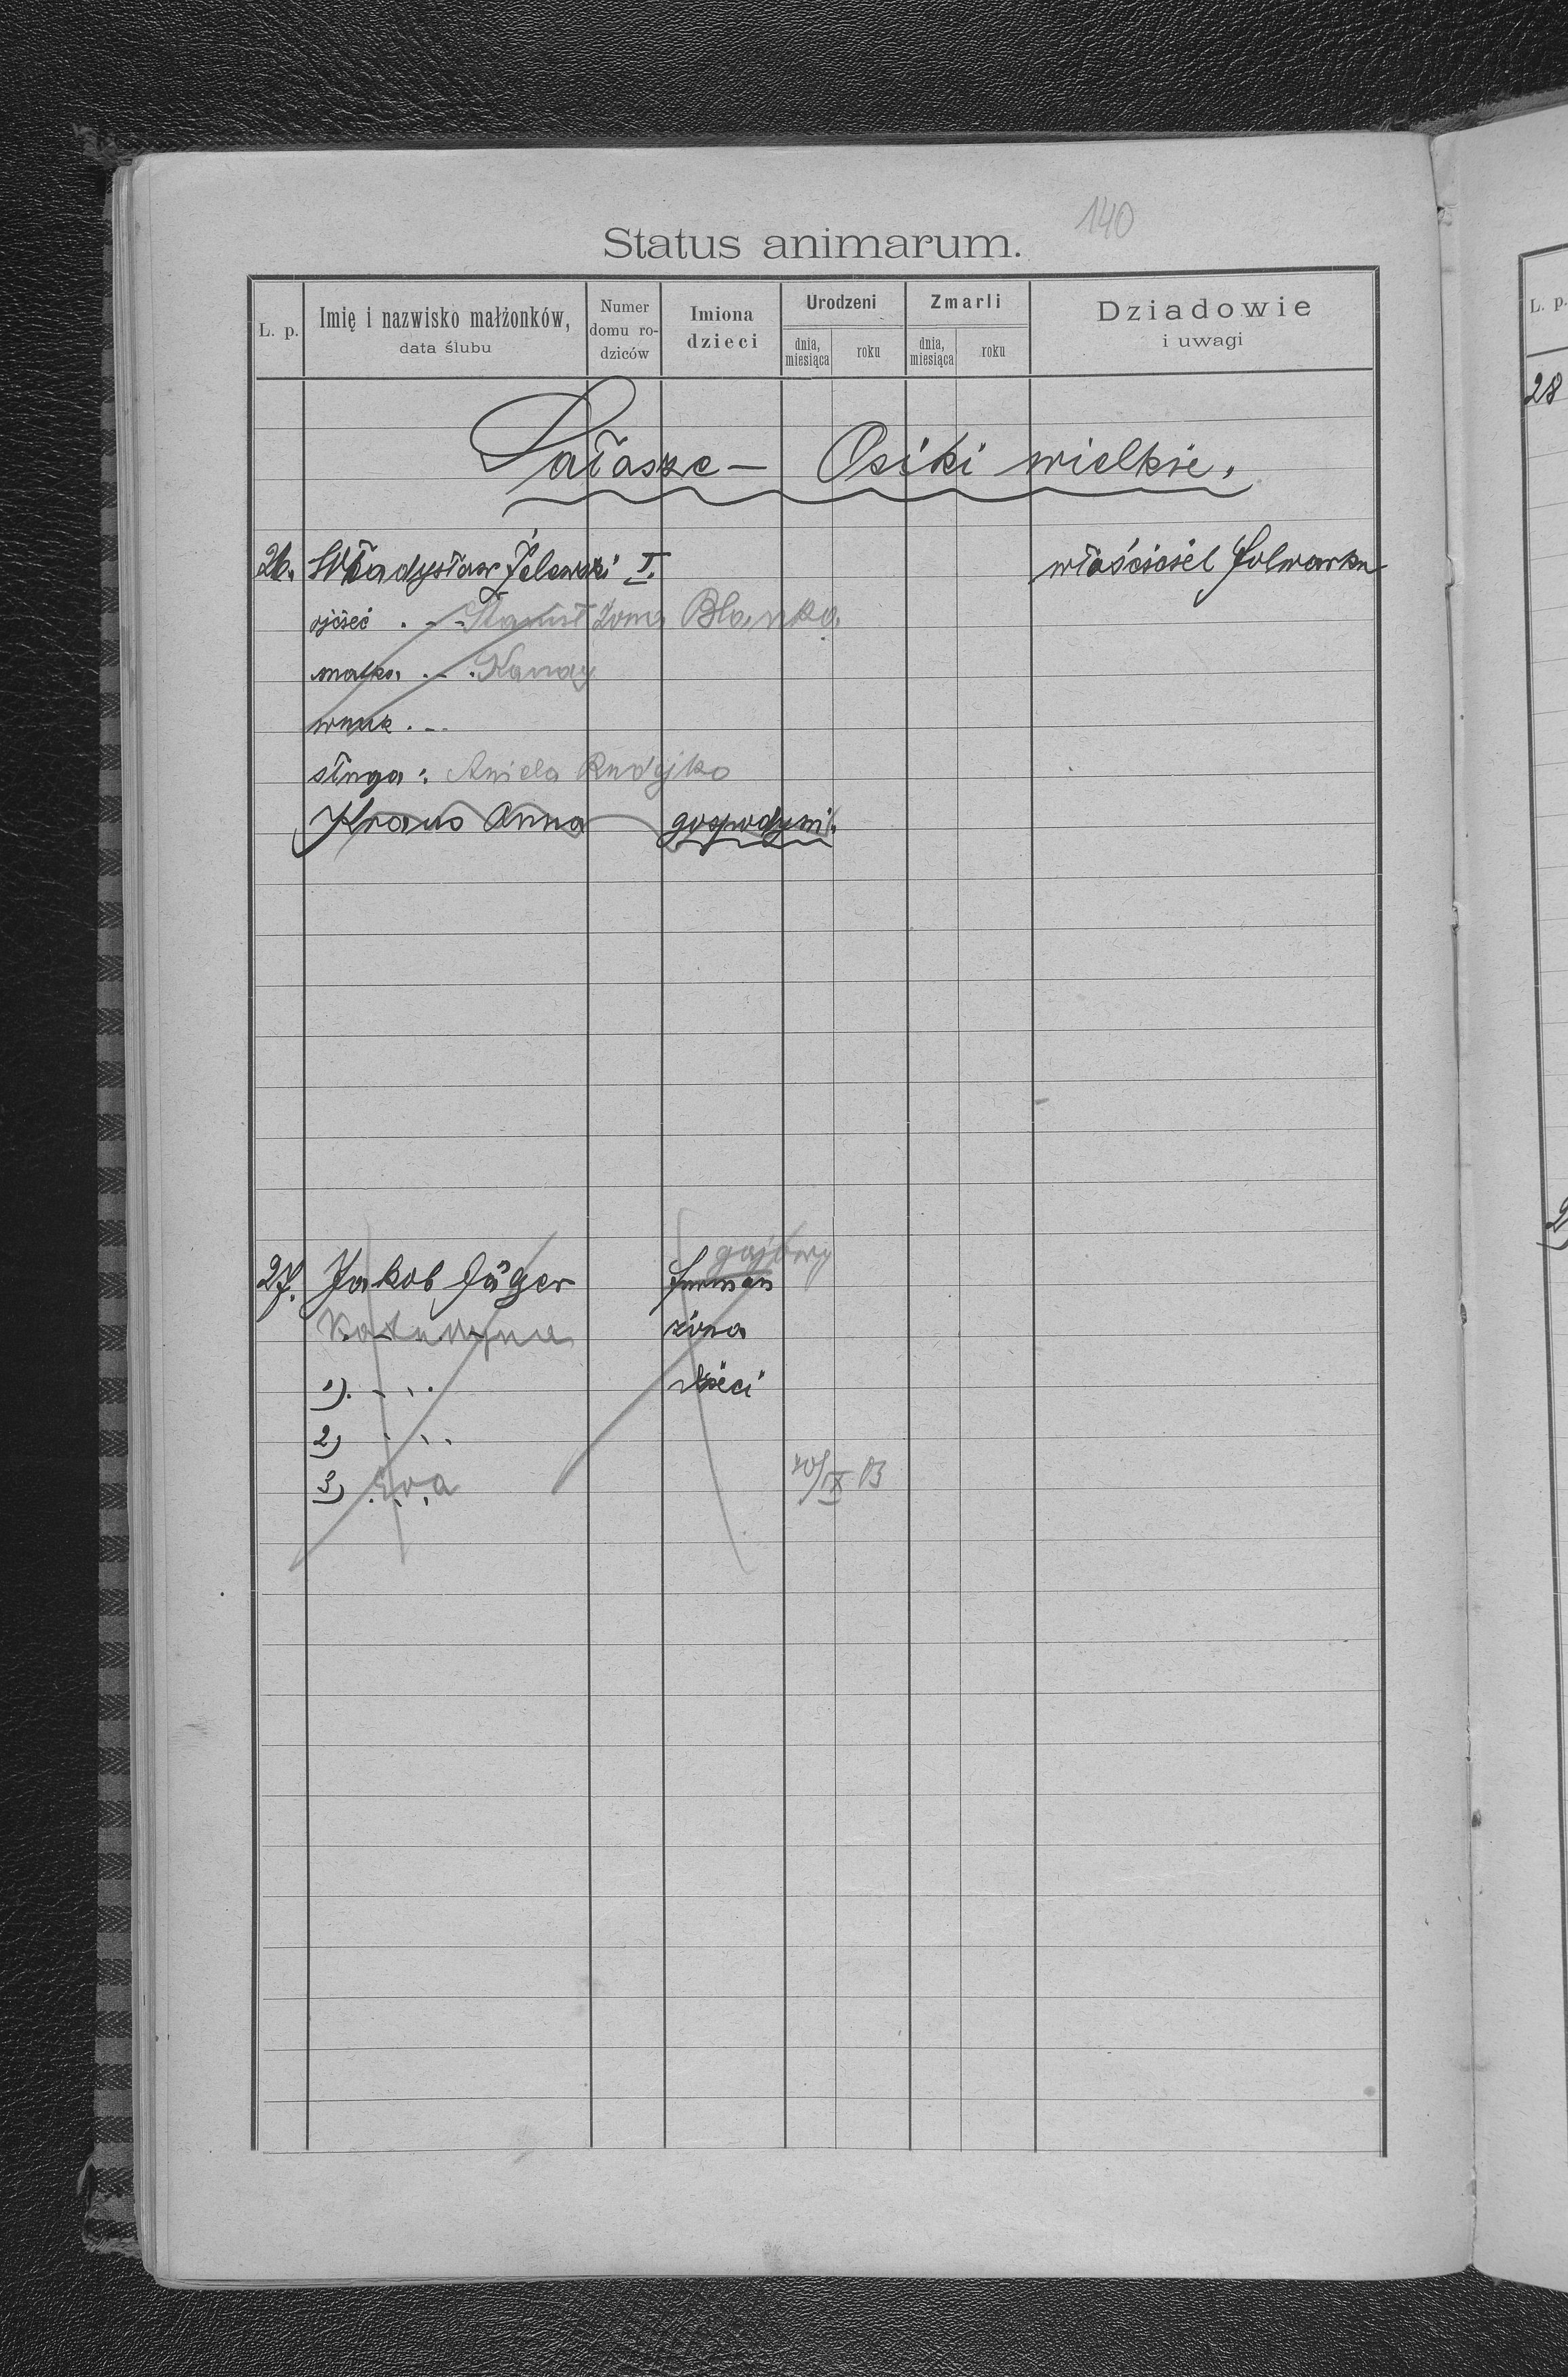 140
Status animarum.
L. p. Imię i nazwisko małżonków, data ślubu Numer domu rodziców Imiona dzieci Urodzeni dnia, miesiąca roku Zmarli dnia, miesiąca roku Dziadowie i uwagi
Sałasze - Osiki wielkie.
26. Władysław Żelewski I. właściciel folwarku
ojciec . - - Żona Blanka
matka . - .
wnuk . - -
sługa: Aniela
Kraus Anna gospodyni.
gajowy
27. Jakob Jäger furman
Katarzyna żona
1) . . . dzieci
2) . . .
3) Ewa 20/IX 03
L. p.
28